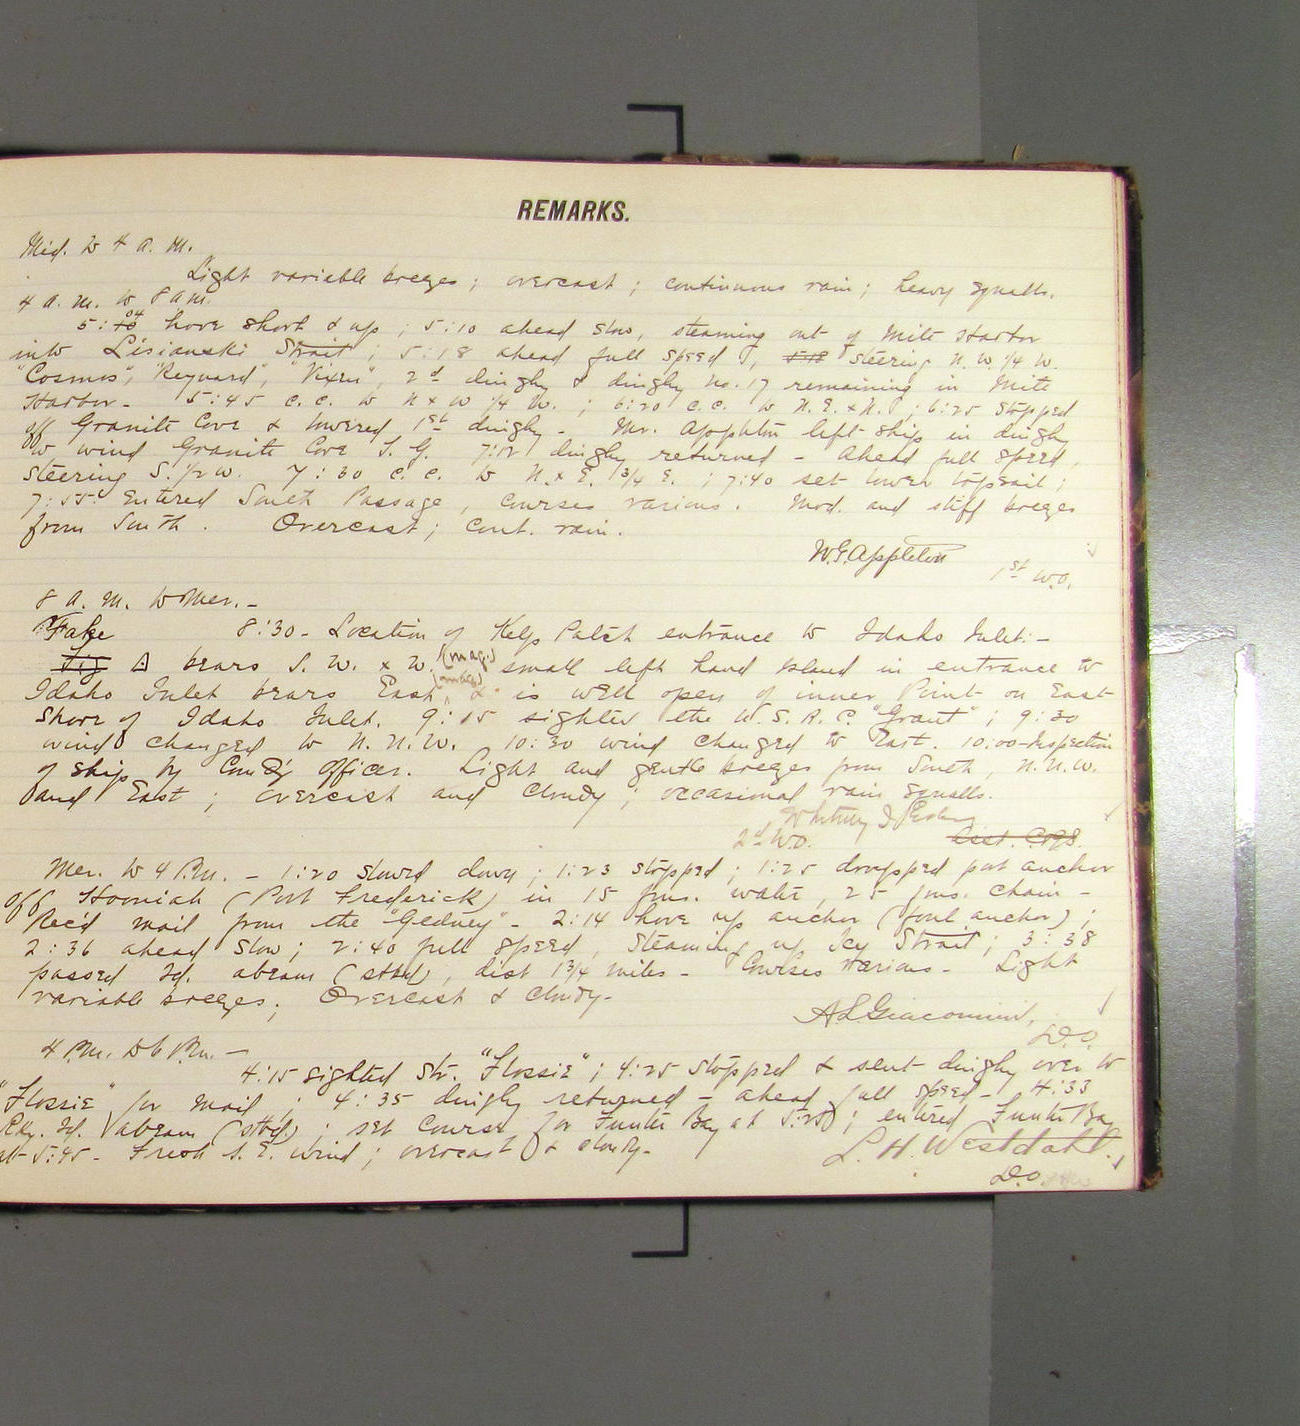 REMARKS.
Mid. to 4 a. m.
Light variable breezes; overcast; continuous rain; heavy squalls.
4 a. m. to 8 a m.
5:04 hove short & up; 5:10 ahead slow, steaming out of Mite Harbor
into Lisianski Strait; 5:18 ahead full speed, steering N. W. 1/4 W.
"Cosmos", "Reynard", "Vixen", 2d dinghy & dinghy no. 17 remaining in Mite
Harbor - 5:45 c. c. to N x W 1/4 W.; 6:20 c. c. to N. E. x N.; 6:25 stopped
off Granite Cove & lowered 1st dinghy - Mr. Appleton left ship in dinghy
to wind Granite Cove T. G. 7:12 dinghy returned - Ahead full speed,
steering S. 1/2 W. 7:30 c. c. to N. x E. 1 3/4 E.; 7:40 set lower topsail;
7:55 Entered South Passage, courses various. Mod. and stiff breezes
from South. Overcast; cont. rain.
W. E. Appleton
1st W.O.
8 A. M. to Mer. -
Fake 8:30 - Location of Kelp Patch entrance to Idaho Inlet: -
Jig △ bears S. W. x W. (mag.) small left hand Island in entrance to
Idaho Inlet bears East (mag) & is well open of inner Point on East
Shore of Idaho Inlet. 9:15 sighted the U. S. R. C. "Grant"; 9:30
wind changed to N. N. W. 10:30 wind changed to East. 10:00 - Inspection
of ship by Com'd'g Officer. Light and gentle breezes from South, N. N. W.
and East; overcast and cloudy; occasional rain squalls.
Whitney I.
2d W.O.
Mer. to 4 P.m. - 1:20 slowed down; 1:23 stopped; 1:25 dropped port anchor
off Hooniah (Port Frederick) in 15 fms. water, 25 fms. chain -
Rec'd mail from the "Gedney" - 2:14 hove up anchor (foul anchor);
2:36 ahead slow; 2:40 full speed, steaming up Icy Strait; 3:38
passed Id. abeam (stbd), dist 1 3/4 miles - Courses various - Light
variable breezes; Overcast & cloudy -
A L Giacomini,
D.O.
4 P.m. to 6 P.m. -
4:15 sighted str. "Flossie"; 4:25 stopped & sent dinghy over to
"Flossie" for mail; 4:35 dinghy returned - ahead full speed - 4:33
Rky. Id. abeam (stbd.); set course for Funter Bay at 5:25; entered Funter Bay
at 5:45 - Fresh S. E. wind; overcast & cloudy -
L. H. Westdahl.
D.O.